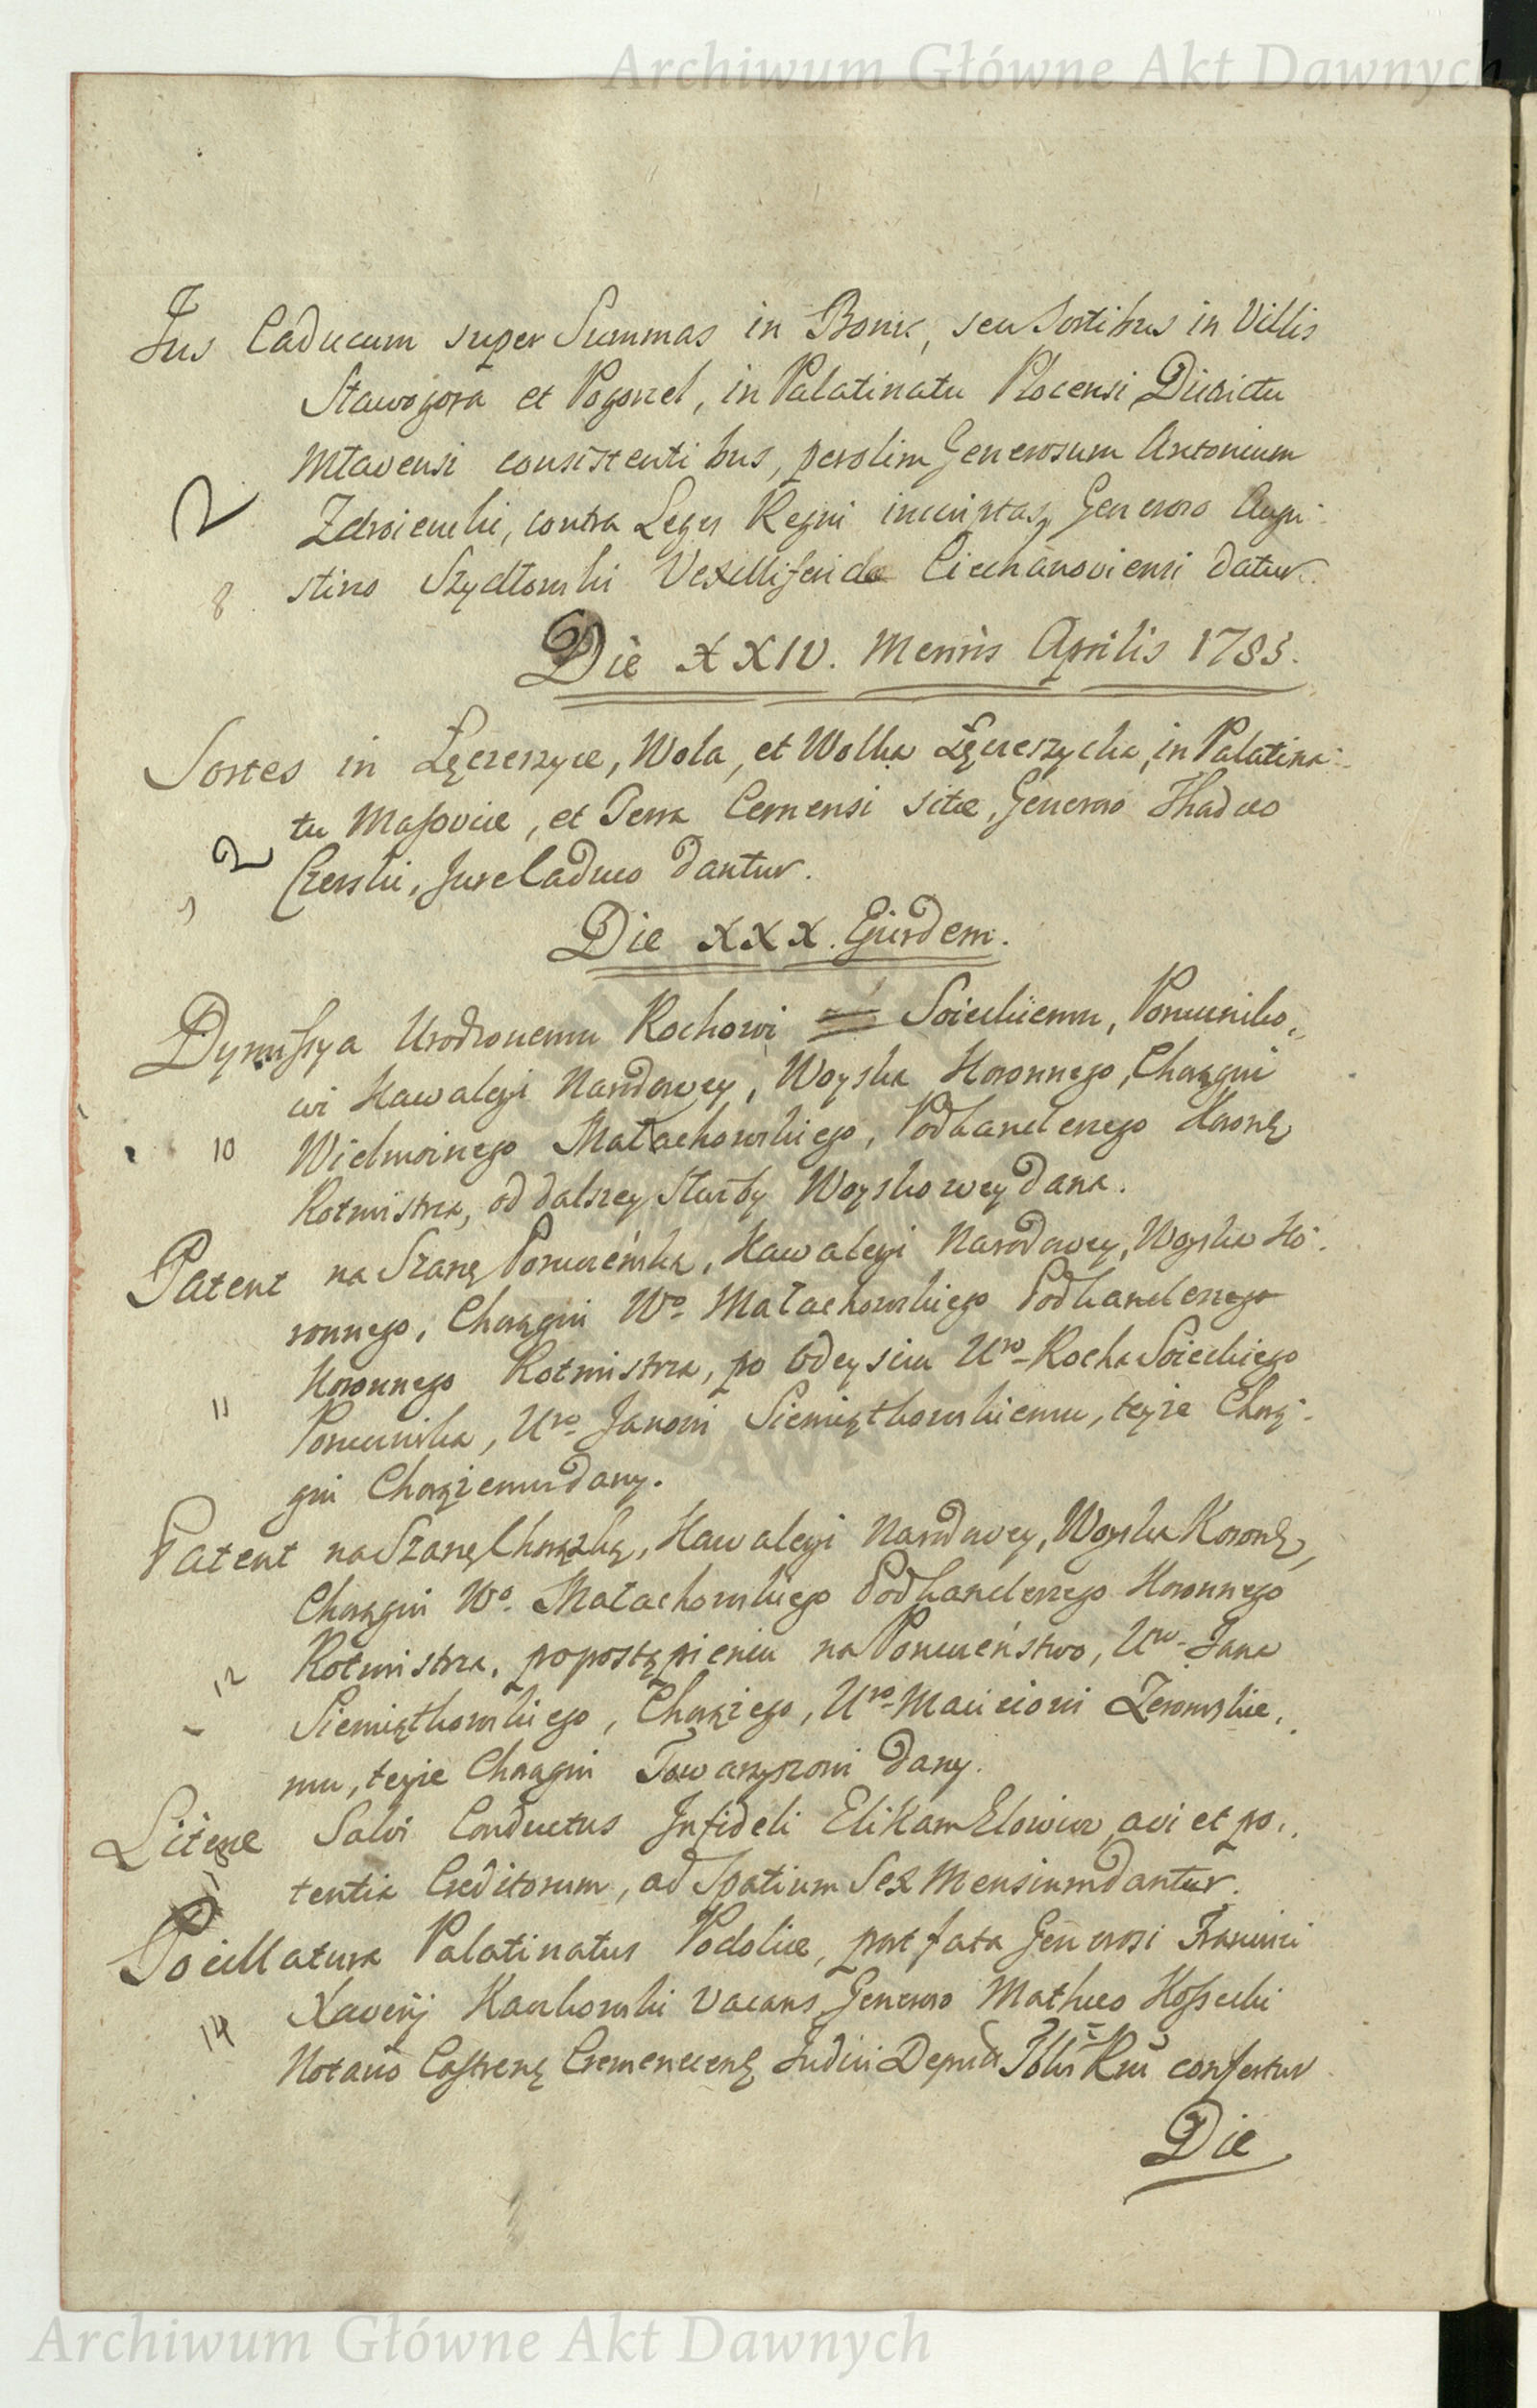 Archiwum Główne Akt Dawnych
Jus Caducum super Summas in Bonis, seu Sortibus in Villis
Stawogora et Pogorzel, in Palatinatu Plocensi Districtu
Mławensi consistentibus, per olim Generosum Antonium
2
Zdroienski, contra Leges Regni inscriptas, Generoso Augu-
8 stino Szydłowski Vexillifero Ciechanoviensi datur.
Die XXIV. Mensis Aprilis 1783.
Sortes in Łęczeszyce, Wola, et Wolka Łęczeszycka, in Palatina-
tu Masoviæ, et Terra Cernensi sitæ, Generoso Thadæo
2
9 Czerski, Jure Caduco dantur.
Die XXX. Ejusdem.
Dymissya Urodzonemu Rochowi Soieckiemu, Poruczniko-
wi Kawaleryi Narodowey, Woyska Koronnego, Chorągwi
10 Wielmożnego Małachowskiego, Podkanclerzego Koronę
Rotmistrza, od dalszey Służby Woyskowey dana.
Patent na Szarżę Porucznika, Kawaleryi Narodowey, Woyska Ko-
ronnego, Chorągwi Wo. Małachowskiego Podkanclerzego
Koronnego Rotmistrza, po Odeysciu Uro Rocha Soieckiego
11 Porucznika, Uro Janowi Siemiątkowskiemu, teyże Chorą-
gwi Chorążemu dany.
Patent na Szarżę Chorążką, Kawaleryi Narodowey, Woyska Koronę,
Chorągwi Wo. Małachowskiego Podkanclerzego Koronnego
12 Rotmistrza, po postąpieniu na Poruczeństwo, Uro Jana
Siemiątkowskiego, Chorążego, Uro Macieiowi Żeromskie-
mu, teyże Chorągwi Towarzyszowi dany.
Literæ Salvi Conductus Infideli avi et po-
13 tentia Creditorum, ad Spatium Sex Mensium dantur.
Pocillatura Palatinatus Podoliæ, post fata Generosi Francisci
14 Xaverij Karchowski vacans Generoso Mathæo Kossecki
Notario Castrensę Cremenecensę Judici Deputt Tblis Rni confertur
Die
Archiwum Główne Akt Dawnych